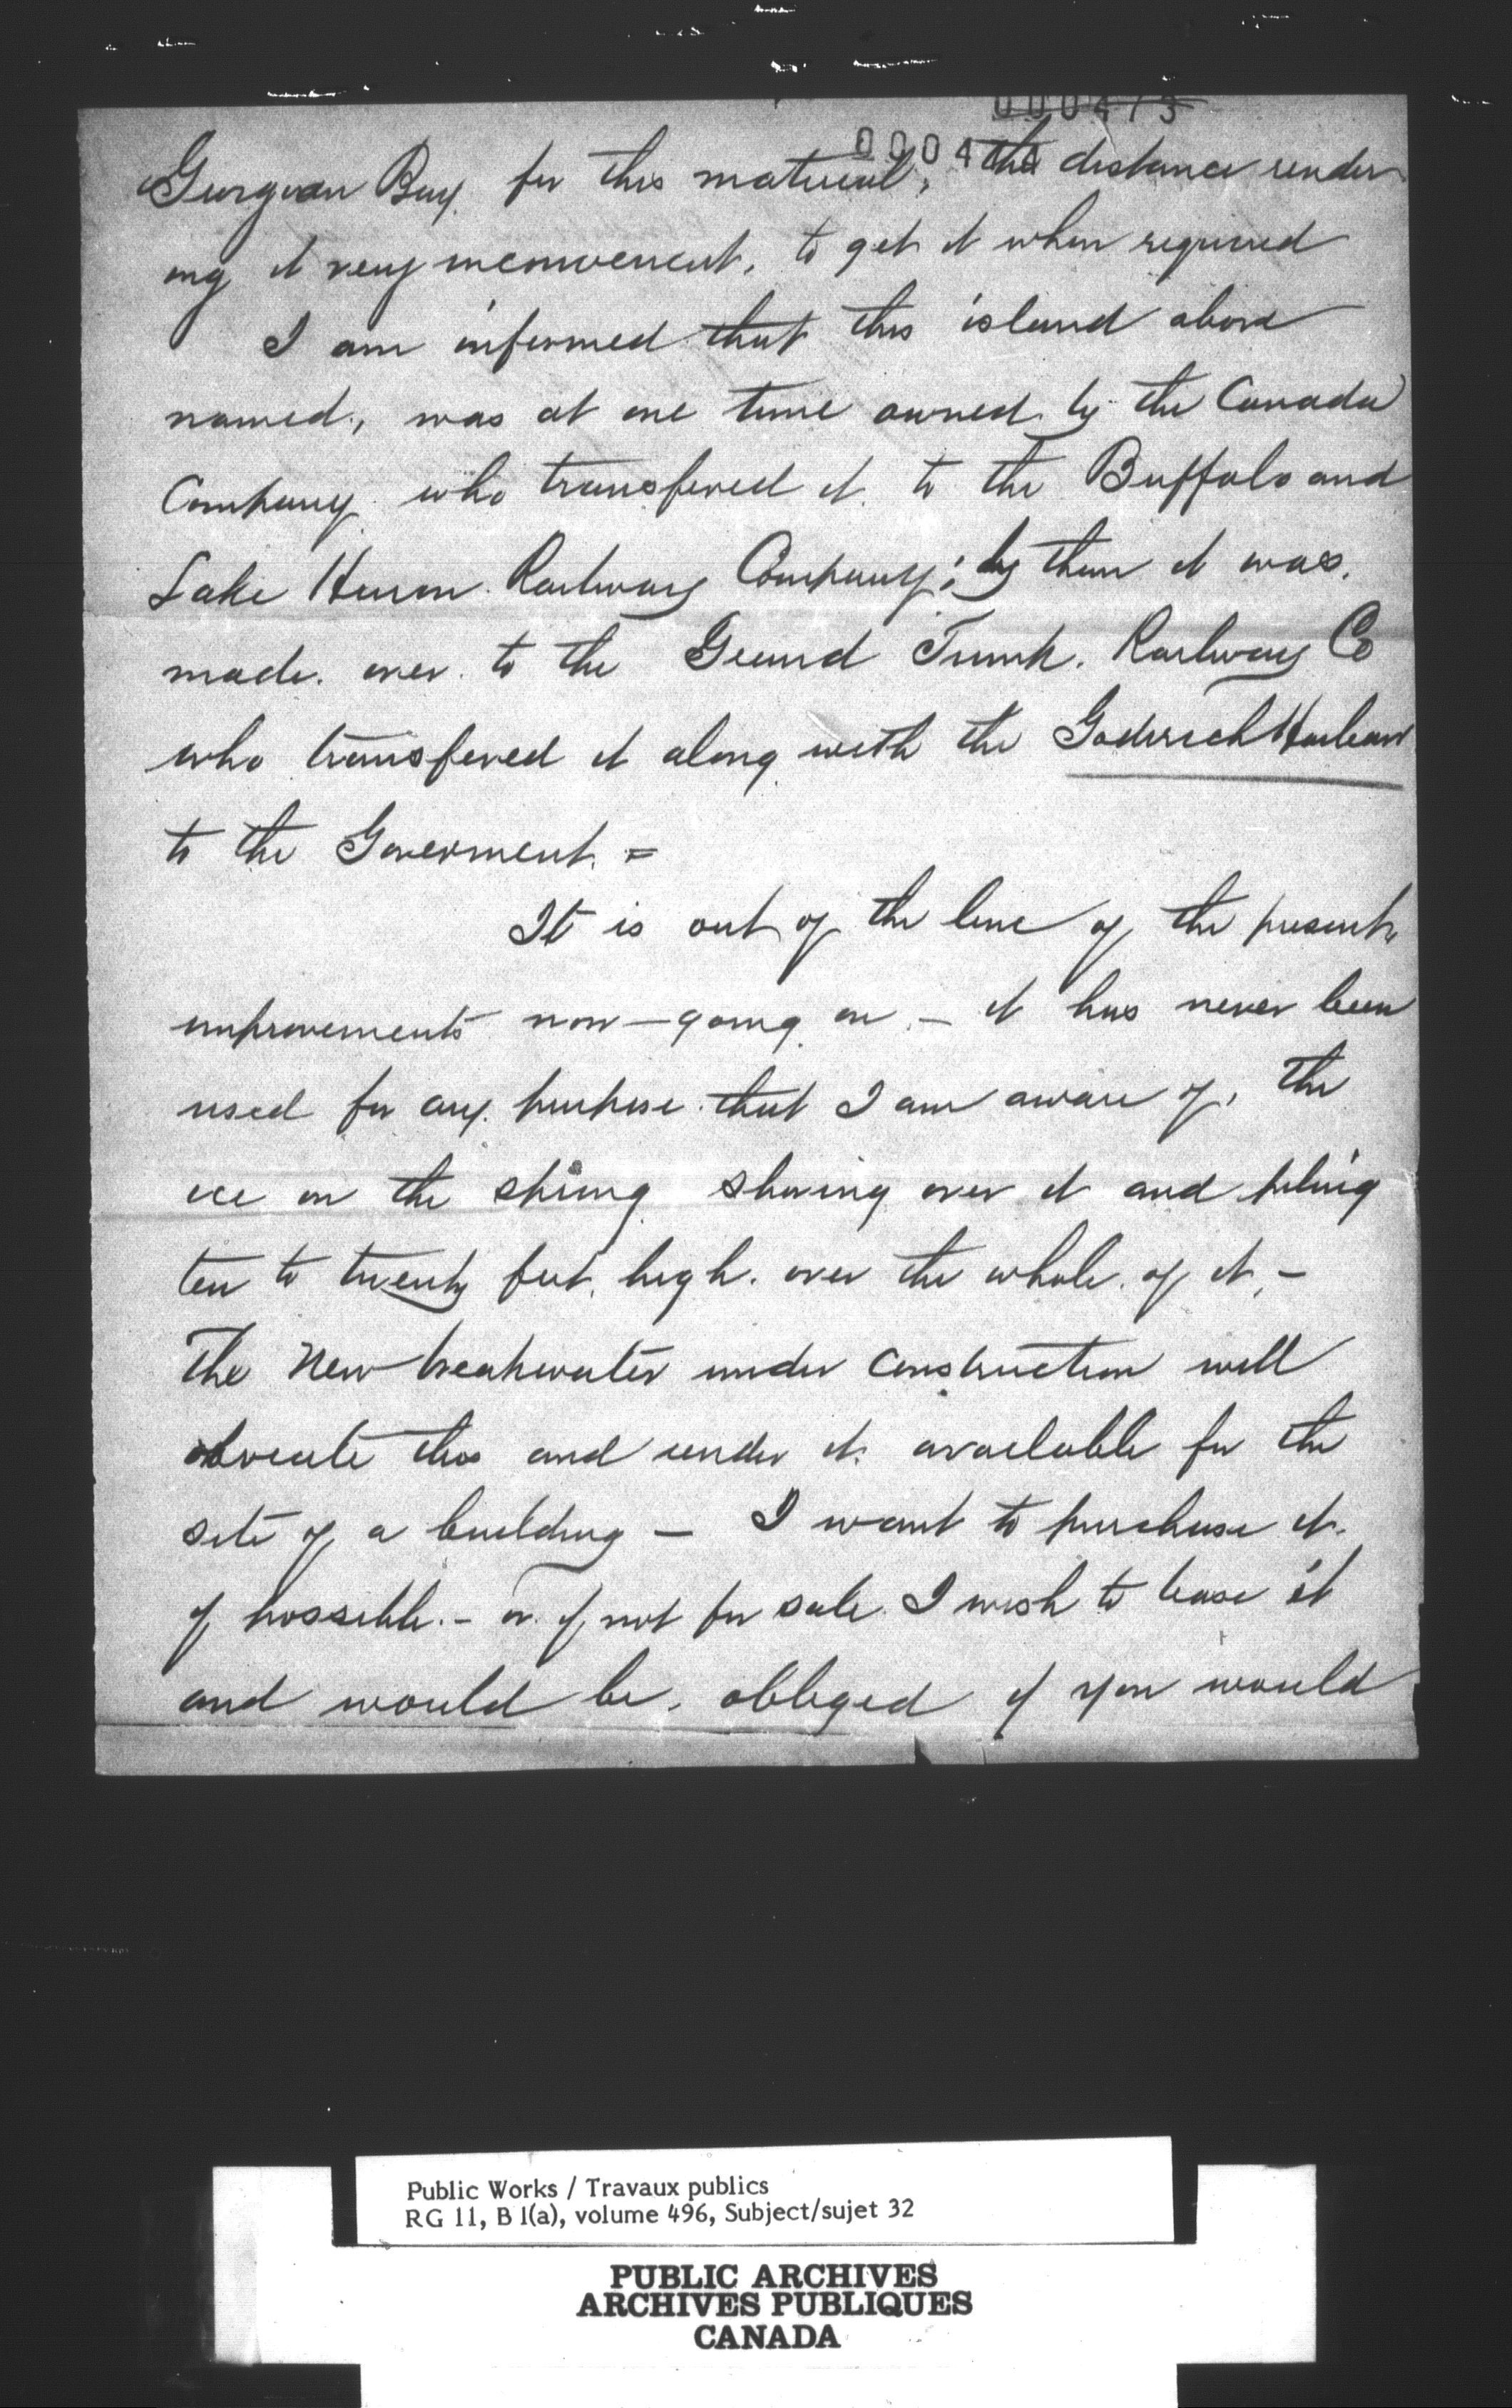 000473
000474
Georgian Bay for this material, the distance render
ing it very inconvenient, to get it when required
I am informed that this island above
named, was at one time owned by the Canada
Company who transfered it to the Buffalo and
Lake Huron Railway Company; by them it was
made over to the Grand Trunk Railway Co
who transfered it along with the Goderich Harbour
to the Goverment. =
It is out of the line of the present
improvements now - going on - it has never been
used for any purpose that I am aware of, the
ice in the spring shoving over it and piling
ten to twenty feet high over the whole of it, -
The New breakwater under construction will
obviate this and render it available for the
site of a building - I want to purchase it
if possible. - or if not for sale I wish to lease it
and would be obliged if you would
Public Works / Travaux publics
RG 11, B 1(a), volume 496, Subject/sujet 32
PUBLIC ARCHIVES
ARCHIVES PUBLIQUES
CANADA